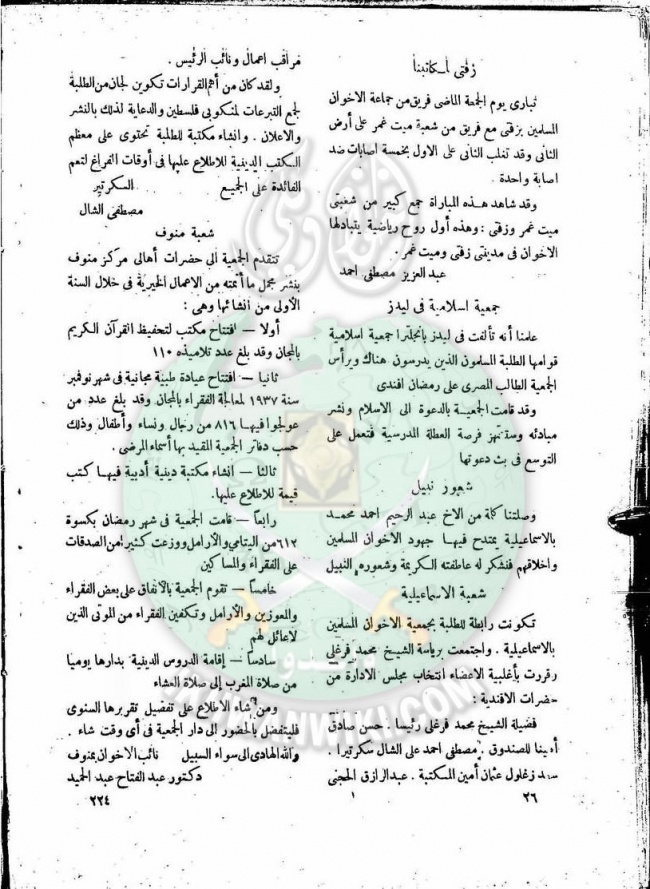 زفتى لمكاتبنا
تبارى يوم الجمعة الماضى فريق من جماعة الاخوان
المسلمين بزفتى مع فريق من شعبة ميت غمر على أرض
الثانى وقد تغلب الثانى على الاول بخمسة اصابات ضد
اصابة واحدة .
وقد شاهد هذه المباراة جمع كبير من شعبتى
ميت غمر وزفتى : وهذه أول روح رياضية يتبادلها
الاخوان فى مدينتى زفتى وميت غمر .
عبد العزيز مصطفى احمد
جمعية اسلامية فى ليدز
علمنا أنه تألفت فى ليدز بانجلترا جمعية اسلامية
قوامها الطلبة المسلمون الذين يدرسون هناك ويرأس
الجمعية الطالب المصرى على رمضان افندى
وقد قامت الجمعية بالدعوة الى الاسلام ونشر
مبادئه وستنتهز فرصة العطلة المدرسية فتعمل على
التوسع فى بث دعوتها
شعور نبيل
وصلتنا كلمة من الاخ عبد الرحيم احمد محمد
بالاسماعيلية يمتدح فيها جهود الاخوان المسلمين
واخلاقهم فنشكر له عاطفته الكريمة وشعوره النبيل
شعبة الاسماعيلية
تكونت رابطة للطلبة بجمعية الاخوان المسلمين
بالاسماعيلية . واجتمعت برياسة الشيخ محمد فرغلى
وقررت بأغلبية الاعضاء انتخاب مجلس الادارة من
حضرات الافندية :
فضيلة الشيخ محمد فرغلى رئيسا . حسن صادق
أمينا للصندوق . مصطفى احمد على الشال سكرتيرا .
سعد زغلول عثمان أمين المكتبة . عبد الرازق الحجنى
٢٦
١
مراقب اعمال ونائب الرئيس .
ولقد كان من أهم القرارات تكوين لجان من الطلبة
لجمع التبرعات لمنكوبى فلسطين والدعاية لذلك بالنشر
والاعلان . وانشاء مكتبة للطلبة تحتوى على معظم
الكتب الدينية للاطلاع عليها فى أوقات الفراغ لتعم
الفائدة على الجميع السكرتير
مصطفى الشال
شعبة منوف
تتقدم الجمعية الى حضرات أهالى مركز منوف
بنشر مجمل ما أتمته من الاعمال الخيرية فى خلال السنة
الأولى من انشائها وهى :
أولا — افتتاح مكتب لتحفيظ القرآن الكريم
بالمجان وقد بلغ عدد تلاميذه ١١٠
ثانيا — افتتاح عيادة طبية مجانية فى شهر نوفمبر
سنة ١٩٣٧ لمعالجة الفقراء بالمجان وقد بلغ عدد من
عولجوا فيها ٨١٦ من رجال ونساء وأطفال وذلك
حسب دفاتر الجمعية المقيد بها أسماء المرضى .
ثالثا — انشاء مكتبة دينية أدبية فيها كتب
قيمة للاطلاع عليها.
رابعا — قامت الجمعية فى شهر رمضان بكسوة
٦١٢ من اليتامى والأرامل ووزعت كثيرا من الصدقات
على الفقراء والمساكين
خامسا — تقوم الجمعية بالأنفاق على بعض الفقراء
والمعوزين والأرامل وتكفين الفقراء من الموتى الذين
لا عائل لهم
سادسا — إقامة الدروس الدينية بدارها يوميا
من صلاة المغرب إلى صلاة العشاء
ومن شاء الاطلاع على تفصيل تقريرها السنوى
فليتفضل بالحضور الى دار الجمعية فى أى وقت شاء .
والله الهادى الى سواء السبيل نائب الاخوان بمنوف
دكتور عبد الفتاح عبد الحميد
٢٢٤
IKHWANWIKI.COM